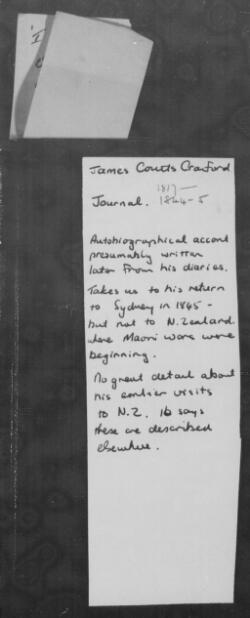 James Coutts Crawford
1817 –
Journal. 1844-5
Autobiographical accont
presumably written
later from his diaries.
Takes us to his return
to Sydney in 1845 -
but not to N. Zealand
where Maori wars were
beginning.
No great detail about
his earlier visits
to N.Z. 16 says
these are described
elsewhere.